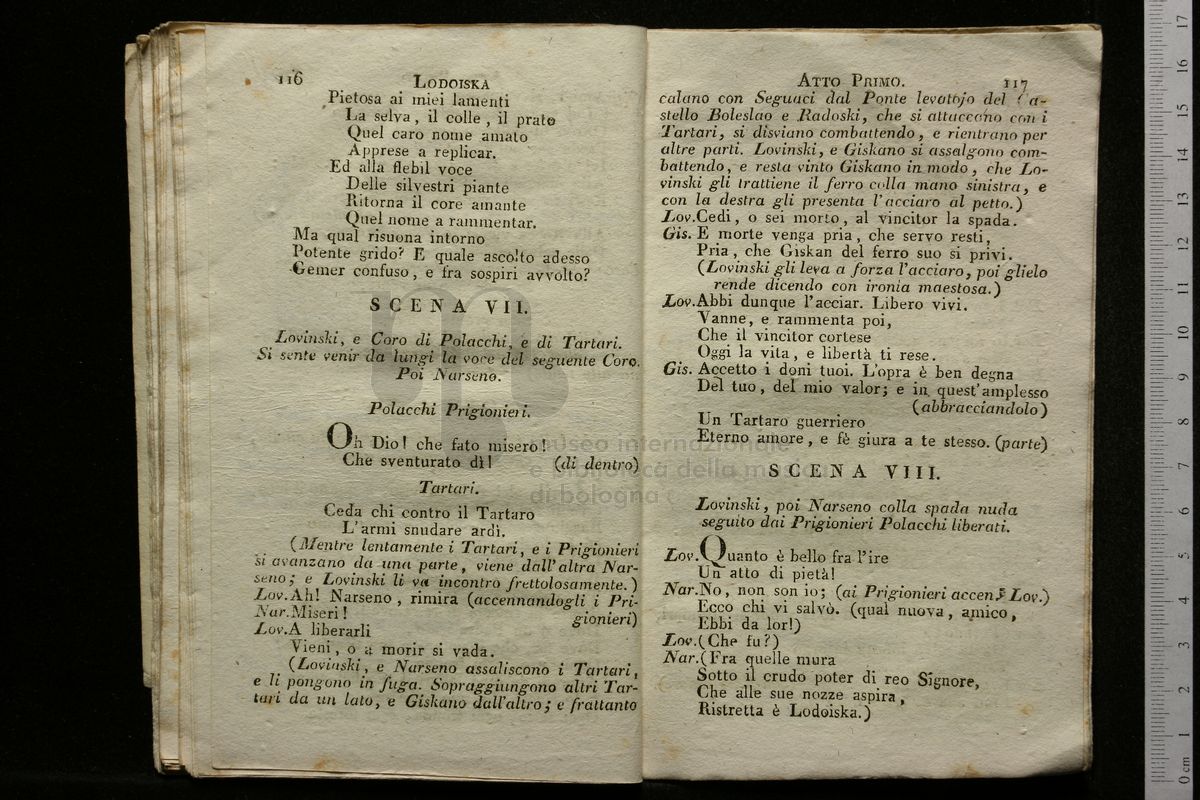 116
LODOISKA
Pietosa ai miei lamenti
La selva, il colle, il prato
Quel caro nome amato
Apprese a replicar.
Ed alla flebil voce
Delle silvestri piante
Ritorna il core amante
Quel nome a rammentar.
Ma qual risuona intorno
Potente grido? E quale ascolto adesso
Gemer confuso, e fra sospiri avvolto?
SCENA VII.
Lovinski, e Coro di Polacchi, e di Tartari.
Si sente venir da lungi la voce del seguente Coro.
Poi Narseno.
Polacchi Prigionieri.
Oh Dio! che fato misero!
Che sventurato dì! (di dentro)
Tartari.
Ceda chi contro il Tartaro
L'armi snudare ardì.
(Mentre lentamente i Tartari, e i Prigionieri
si avanzano da una parte, viene dall'altra Nar-
seno; e Lovinski li va incontro frettolosamente.)
Lov. Ah! Narseno, rimira (accennandogli i Pri-
Nar. Miseri! gionieri)
Lov. A liberarli
Vieni, o a morir si vada.
(Lovinski, e Narseno assaliscono i Tartari,
e li pongono in fuga. Sopraggiungono altri Tar-
tari da un lato, e Giskano dall'altro; e frattanto
ATTO PRIMO. 117
calano con Seguaci dal Ponte levatojo del Ca-
stello Boleslao e Radoski, che si attaccano con i
Tartari, si disviano combattendo, e rientrano per
altre parti. Lovinski, e Giskano si assalgono com-
battendo, e resta vinto Giskano in modo, che Lo-
vinski gli trattiene il ferro colla mano sinistra, e
con la destra gli presenta l'acciaro al petto.)
Lov. Cedi, o sei morto, al vincitor la spada.
Gis. E morte venga pria, che servo resti,
Pria, che Giskan del ferro suo si privi.
(Lovinski gli leva a forza l'acciaro, poi glielo
rende dicendo con ironia maestosa.)
Lov. Abbi dunque l'acciar. Libero vivi.
Vanne, e rammenta poi,
Che il vincitor cortese
Oggi la vita, e libertà ti rese.
Gis. Accetto i doni tuoi. L'opra è ben degna
Del tuo, del mio valor; e in quest'amplesso
(abbracciandolo)
Un Tartaro guerriero
Eterno amore, e fè giura a te stesso. (parte)
SCENA VIII.
Lovinski, poi Narseno colla spada nuda
seguito dai Prigionieri Polacchi liberati.
Lov. Quanto è bello fra l'ire
Un atto di pietà!
Nar. No, non son io; (ai Prigionieri accen. Lov.)
Ecco chi vi salvò. (qual nuova, amico,
Ebbi da lor!)
Lov. (Che fu?)
Nar. (Fra quelle mura
Sotto il crudo poter di reo Signore,
Che alle sue nozze aspira,
Ristretta è Lodoiska.)
museo internazionale
e biblioteca della musica
di bologna
0 cm 1 2 3 4 5 6 7 8 9 10 11 12 13 14 15 16 17